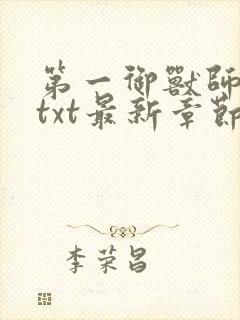 第一御獸師
txt最新章節
李荣昌